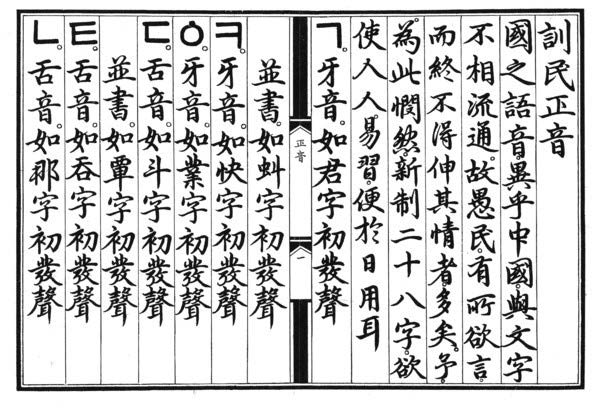 訓民正音
國之語音。異乎中國。與文字
不相流通。故愚民。有所欲言。
而終不得伸其情者。多矣。予。
為此憫然。新制二十八字。欲
使人人。易習。便於日用耳
ㄱ。牙音。如君字初發聲
正音
一
並書。如虯字初發聲
ㅋ。牙音。如快字初發聲
ㆁ。牙音。如業字初發聲
ㄷ。舌音。如斗字初發聲
並書。如覃字初發聲
ㅌ。舌音。如吞字初發聲
ㄴ。舌音。如那字初發聲